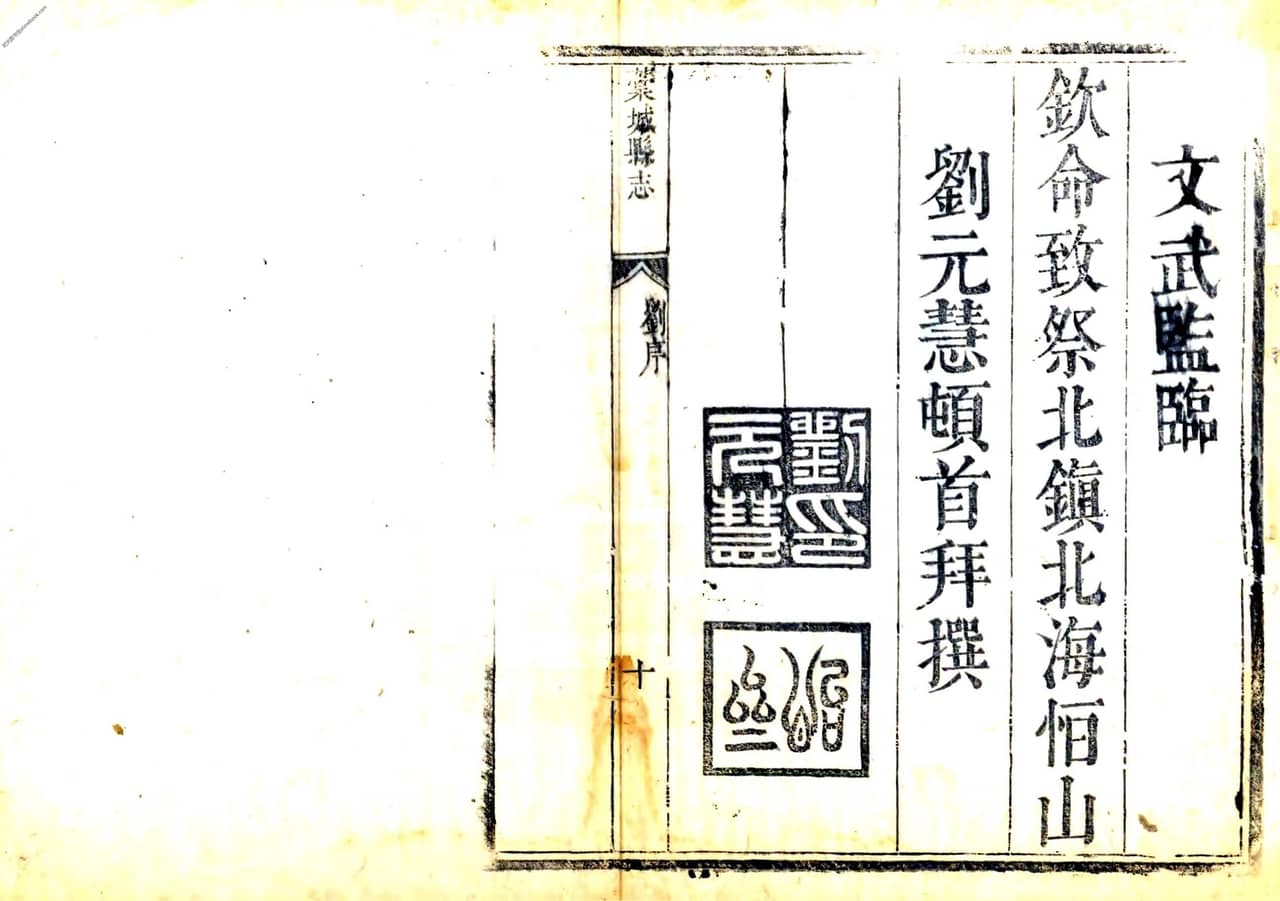 文武監臨
欽命致祭北鎮北海恒山
劉元慧頓首拜撰
劉印
元慧
藁城縣志
劉序
十